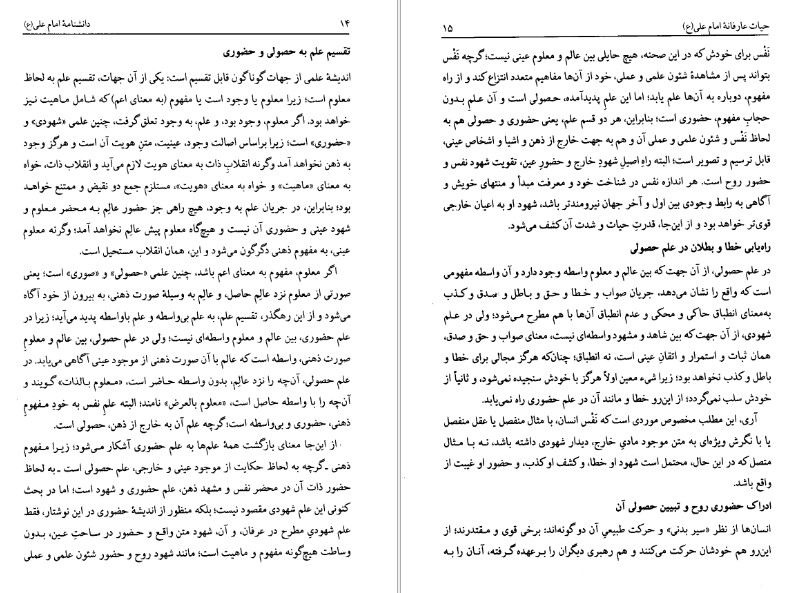 ۱۴ دانشنامهٔ امام علی(ع)
تقسیم علم به حصولی و حضوری
اندیشهٔ علمی از جهات گوناگون قابل تقسیم است: یکی از آن جهات، تقسیم علم به لحاظ
معلوم است؛ زیرا معلوم یا وجود است یا مفهوم (به معنای اعم) که شامل ماهیت نیز
خواهد بود. اگر معلوم، وجود بود، و علم، به وجود تعلق گرفت، چنین علمی «شهودی» و
«حضوری» است؛ زیرا براساس اصالت وجود، عینیت، متنِ هویت آن است و هرگز وجود
به ذهن نخواهد آمد وگرنه انقلابِ ذات به معنای هویت لازم می‌آید و انقلاب ذات، خواه
به معنای «ماهیت» و خواه به معنای «هویت»، مستلزم جمع دو نقیض و ممتنع خواهد
بود؛ بنابراین، در جریان علم به وجود، هیچ راهی جز حضور عالِم به محضر معلوم و
شهود عینی و حضوری آن نیست و هیچ‌گاه معلوم پیش عالِم نخواهد آمد؛ وگرنه معلوم
عینی، به مفهوم ذهنی دگرگون می‌شود و این، همان انقلاب مستحیل است.
اگر معلوم، مفهوم به معنای اعم باشد، چنین علمی «حصولی» و «صوری» است؛ یعنی
صورتی از معلوم نزد عالِم حاصل، و عالِم به وسیلهٔ صورت ذهنی، به بیرون از خود آگاه
می‌شود و از این رهگذر، تقسیم علم، به علم بی‌واسطه و علم باواسطه پدید می‌آید؛ زیرا در
علم حضوری، بین عالم و معلوم واسطه‌ای نیست؛ ولی در علم حصولی، بین عالم و معلومِ
صورت ذهنی، واسطه است که عالم با آن صورت ذهنی از موجود عینی آگاهی می‌یابد. در
علم حصولی، آن‌چه را نزد عالِم، بدون واسطه حاضر است، «معلوم بالذات» گویند و
آن‌چه را با واسطه حاصل است، «معلوم بالعرض» نامند؛ البته علم نفس به خودِ مفهومِ
ذهنی، حضوری و بی‌واسطه است؛ گرچه علم آن به خارج از ذهن، حصولی است.
از این‌جا معنای بازگشت همهٔ علم‌ها به علم حضوری آشکار می‌شود؛ زیرا مفهوم
ذهنی ـ گرچه به لحاظ حکایت از موجود عینی و خارجی، علم حصولی است ـ به لحاظ
حضور ذات آن در محضر نفس و مشهد ذهن، علم حضوری و شهودی است؛ اما در بحث
کنونی این علم شهودی مقصود نیست؛ بلکه منظور از اندیشهٔ حضوری در این نوشتار، فقط
علم شهودیِ مطرح در عرفان، و آن، شهود متن واقع و حضور در ساحتِ عین، بدون
وساطت هیچ‌گونه مفهوم و ماهیت است؛ مانند شهود روح و حضور شئون علمی و عملی
حیات عارفانهٔ امام علی(ع) ۱۵
نَفْس برای خودش که در این صحنه، هیچ حایلی بین عالم و معلوم عینی نیست؛ گرچه نَفْس
بتواند پس از مشاهدهٔ شئون علمی و عملی، خود از آن‌ها مفاهیم متعدد انتزاع کند و از راه
مفهوم، دوباره به آن‌ها علم یابد؛ اما این علمِ پدیدآمده، حصولی است و آن علمِ بدون
حجابِ مفهوم، حضوری است؛ بنابراین، هر دو قسم علم، یعنی حضوری و حصولی هم به
لحاظ نَفْس و شئون علمی و عملی آن و هم به جهت خارج از ذهن و اشیا و اشخاص عینی،
قابل ترسیم و تصویر است؛ البته راهِ اصیل شهودِ خارج و حضورِ عین، تقویت شهود نفس و
حضور روح است. هر اندازه نفس در شناخت خود و معرفت مبدأ و منتهای خویش و
آگاهی به رابط وجودی بین اول و آخر جهان نیرومندتر باشد، شهود او به اعیان خارجی
قوی‌تر خواهد بود و از این‌جا، قدرتِ حیات و شدت آن کشف می‌شود.
راه‌یابی خطا و بطلان در علم حصولی
در علم حصولی، از آن جهت که بین عالم و معلوم واسطه وجود دارد و آن واسطه مفهومی
است که واقع را نشان می‌دهد، جریان صواب و خطا و حق و باطل و صدق و کذب
به‌معنای انطباق حاکی و محکی و عدم انطباق آن‌ها با هم مطرح می‌شود؛ ولی در علم
شهودی، از آن جهت که بین شاهد و مشهود واسطه‌ای نیست، معنای صواب و حق و صدق،
همان ثبات و استمرار و اتقان عینی است، نه انطباق؛ چنان‌که هرگز مجالی برای خطا و
باطل و کذب نخواهد بود؛ زیرا شیء معین اولاً هرگز با خودش سنجیده نمی‌شود، و ثانیاً از
خودش سلب نمی‌گردد؛ از این‌رو خطا و مانند آن در علم حضوری راه نمی‌یابد.
آری، این مطلب مخصوص موردی است که نَفْس انسان، با مثال منفصل یا عقل منفصل
یا با نگرش ویژه‌ای به متن موجود مادیِ خارج، دیدار شهودی داشته باشد، نه با مثال
متصل که در این حال، محتمل است شهود او خطا، و کشف او کذب، و حضور او غیبت از
واقع باشد.
ادراک حضوری روح و تبیین حصولی آن
انسان‌ها از نظر «سیر بدنی» و حرکت طبیعیِ آن دو گونه‌اند: برخی قوی و مقتدرند؛ از
این‌رو هم خودشان حرکت می‌کنند و هم رهبری دیگران را برعهده گرفته، آنان را به